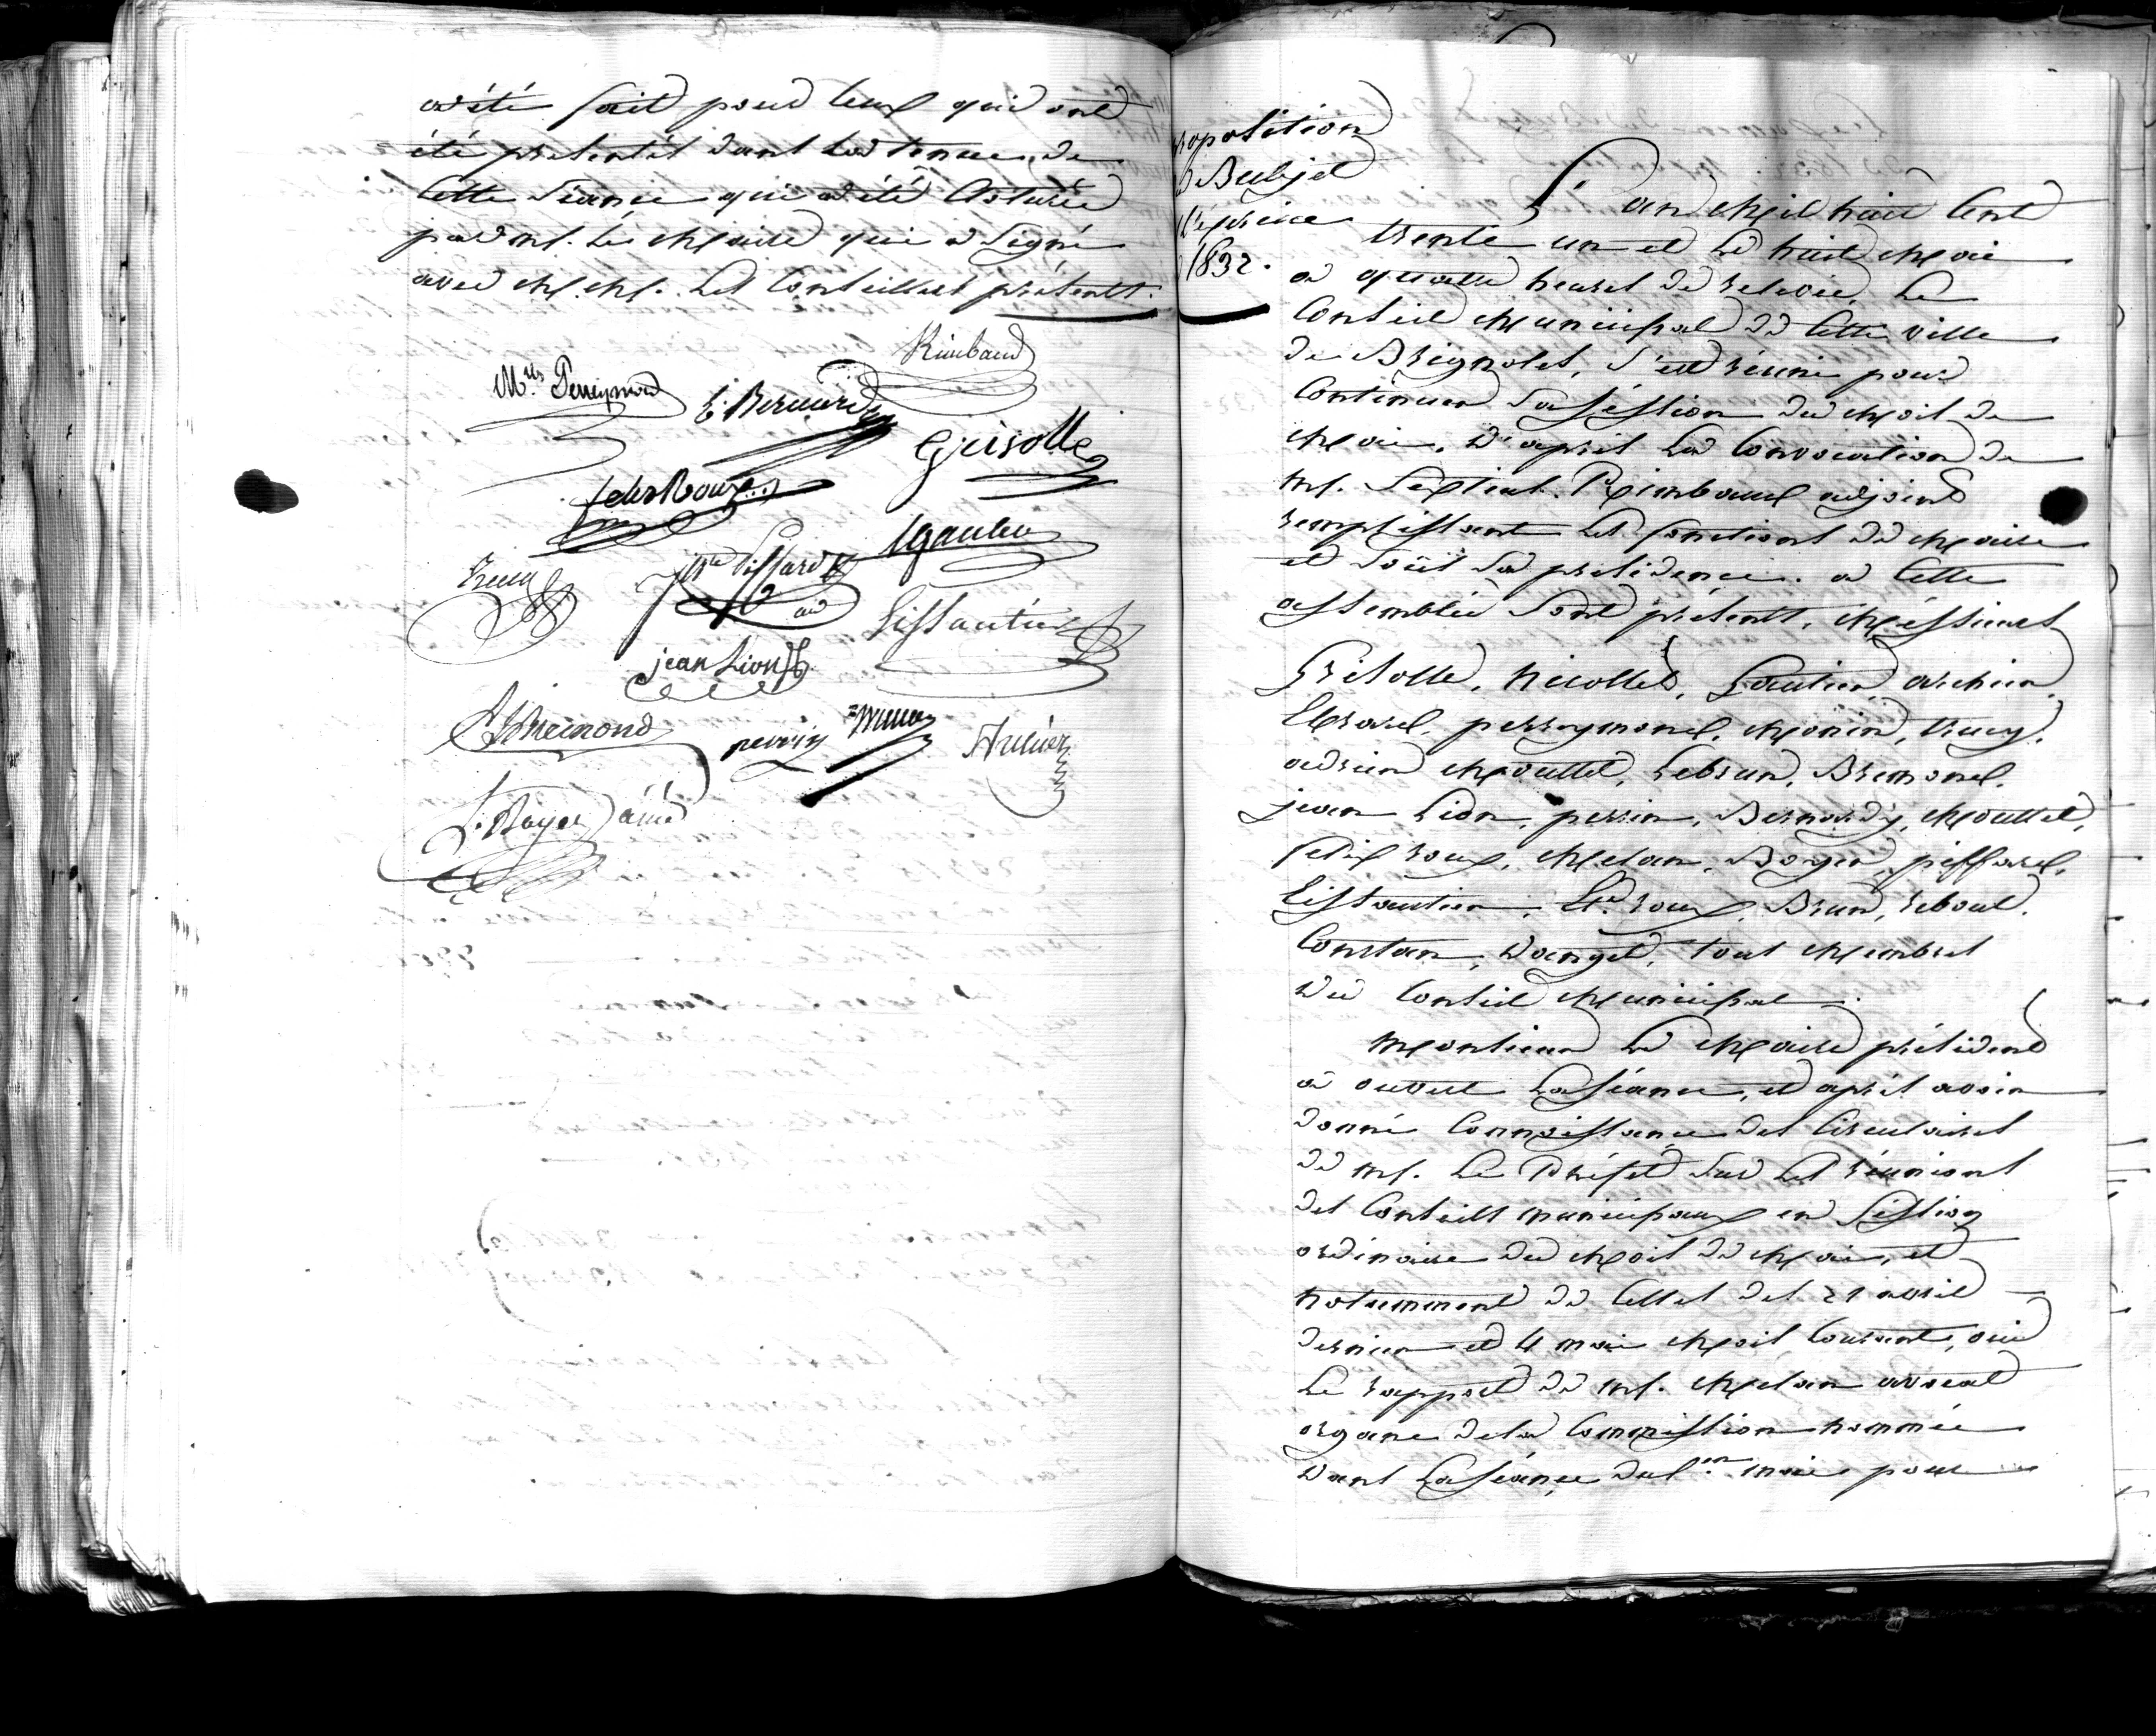 a été fait pour ceux qui ont
été présentés dans la tenue de
cette séance qui a été cloturée
par mr. le maire qui a signé
avec MM. les conseillers présents.
Rimbaud
Mus Perreymond
E. Bernardy
Grisolle
felix Roux
Gautier
Trucy
Piffard
Lissautier
jean Lion
Bremond
perrin
L. Boyer ainé
proposition
Budjet
l'éxercice
1832.
L'an mil huit cent
trente un et le huit mai
a quatre heures de relevée, le
Conseil municipal de cette ville
de Brignoles, s'est réuni pour
continuer sa session du mois de
mai, d'après la convocation de
mr. Rimbaud adjoint
remplissant les fonctions de maire
et sous sa présidence. a cette
assemblée sont présents, messieurs
Grisolle, nicollet, Gautier, archier,
Ebrard, perreymond, monin, trucy,
adrien mouttet, lebrun, Bremond,
jean Lion, perrin, Bernardy, mouttet,
felix roux, melan, Boyer, piffard,
Lissautier, roux, Brun, reboul,
Constan, Dauget, tous membres
du conseil municipal.
monsieur le maire président
a ouvert la séance, et après avoir
donné connaissance des circulaires
de mr. le Préfet sur les réunions
des conseils municipaux en session
ordinaire du mois de mai, et
notamment de celles des 21 avril
dernier et 4 mai mois courant, oui
le rapport de mr. melan avocat
organe de la commission nommée
dans la séance du 1er mai pour